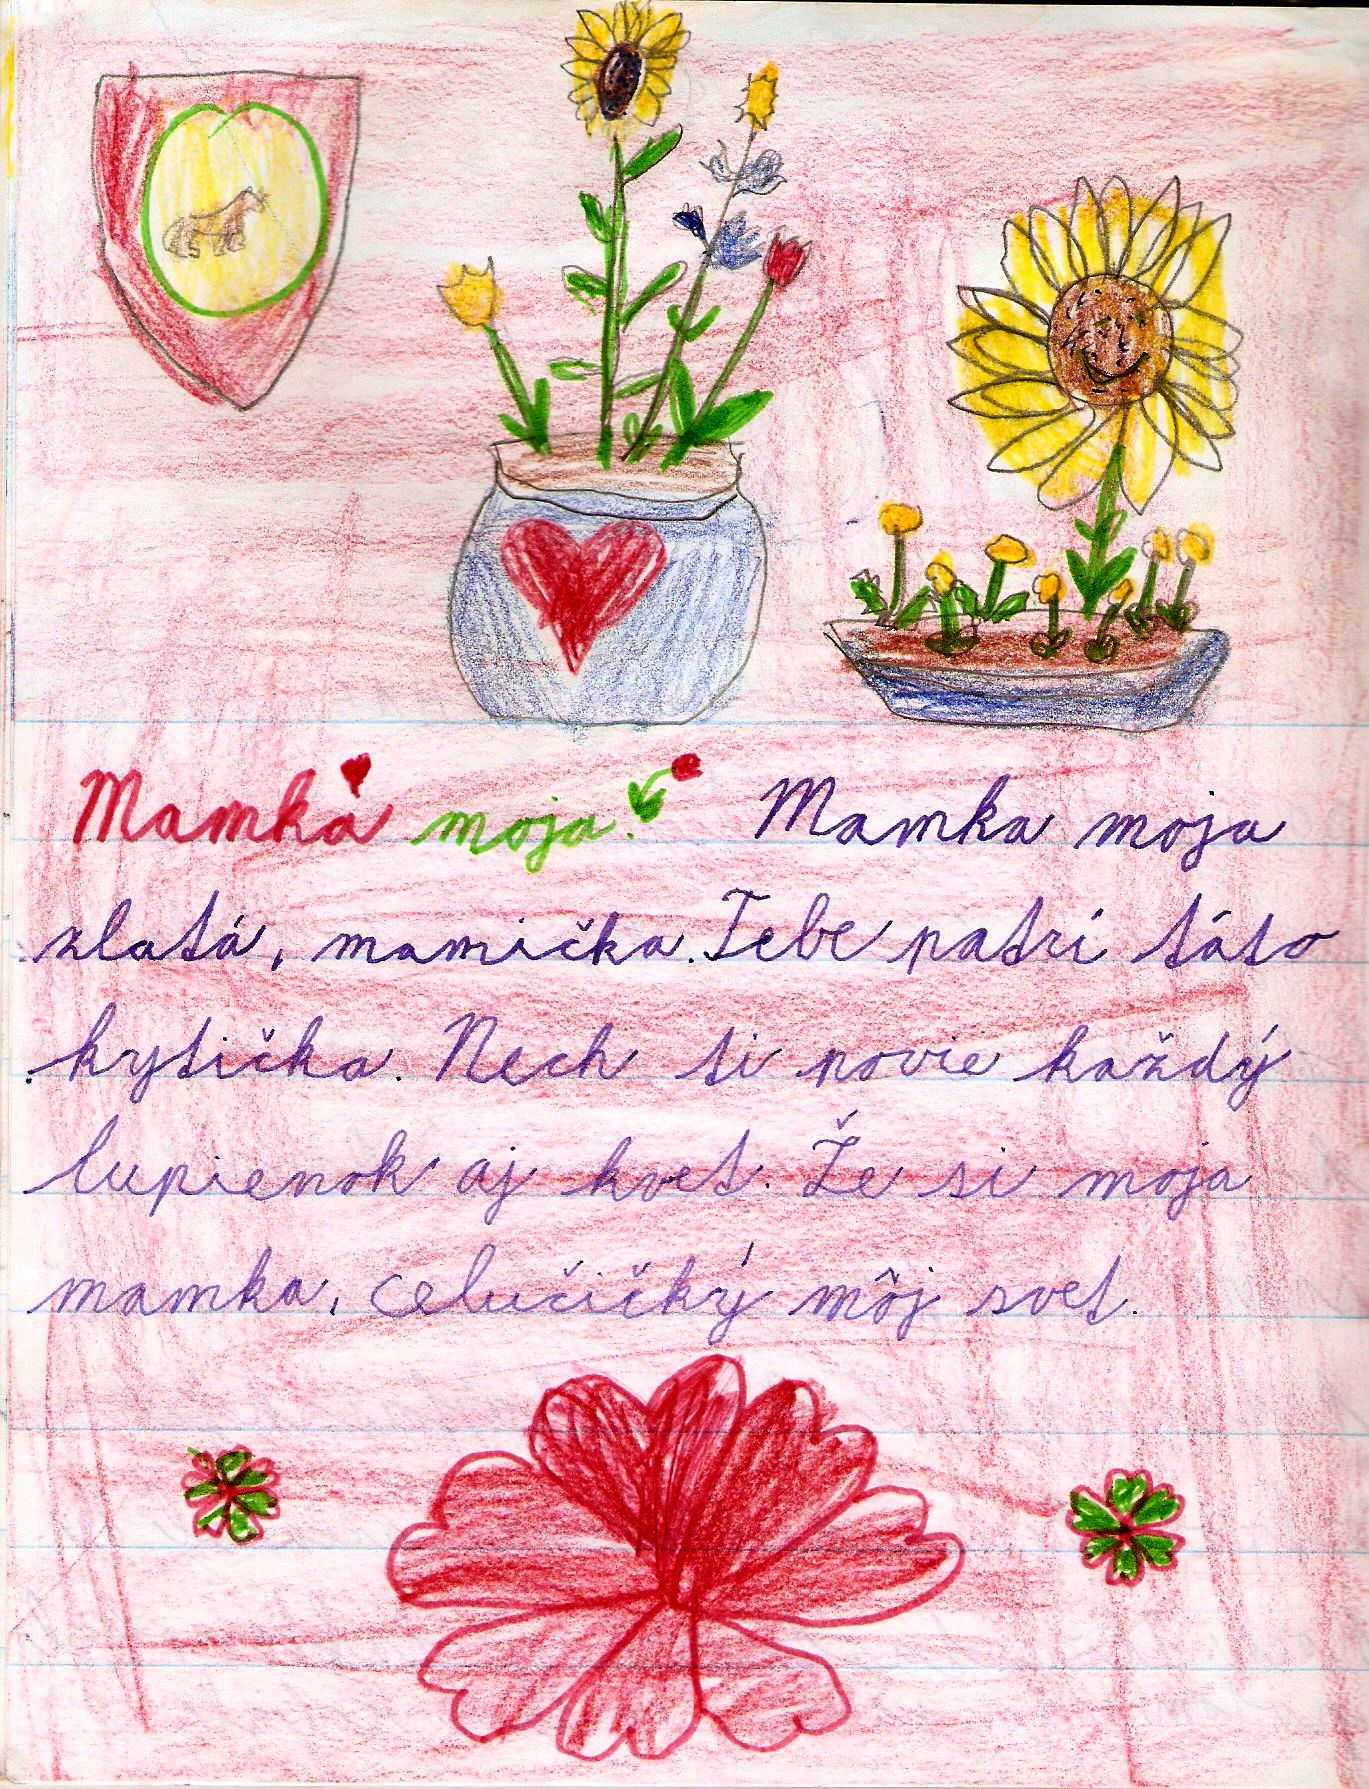 Mamka moja. Mamka moja
zlatá, mamička. Tebe patrí táto
kytička. Nech ti povie každý
lupienok aj kvet. Že si moja
mamka, celučičký môj svet.